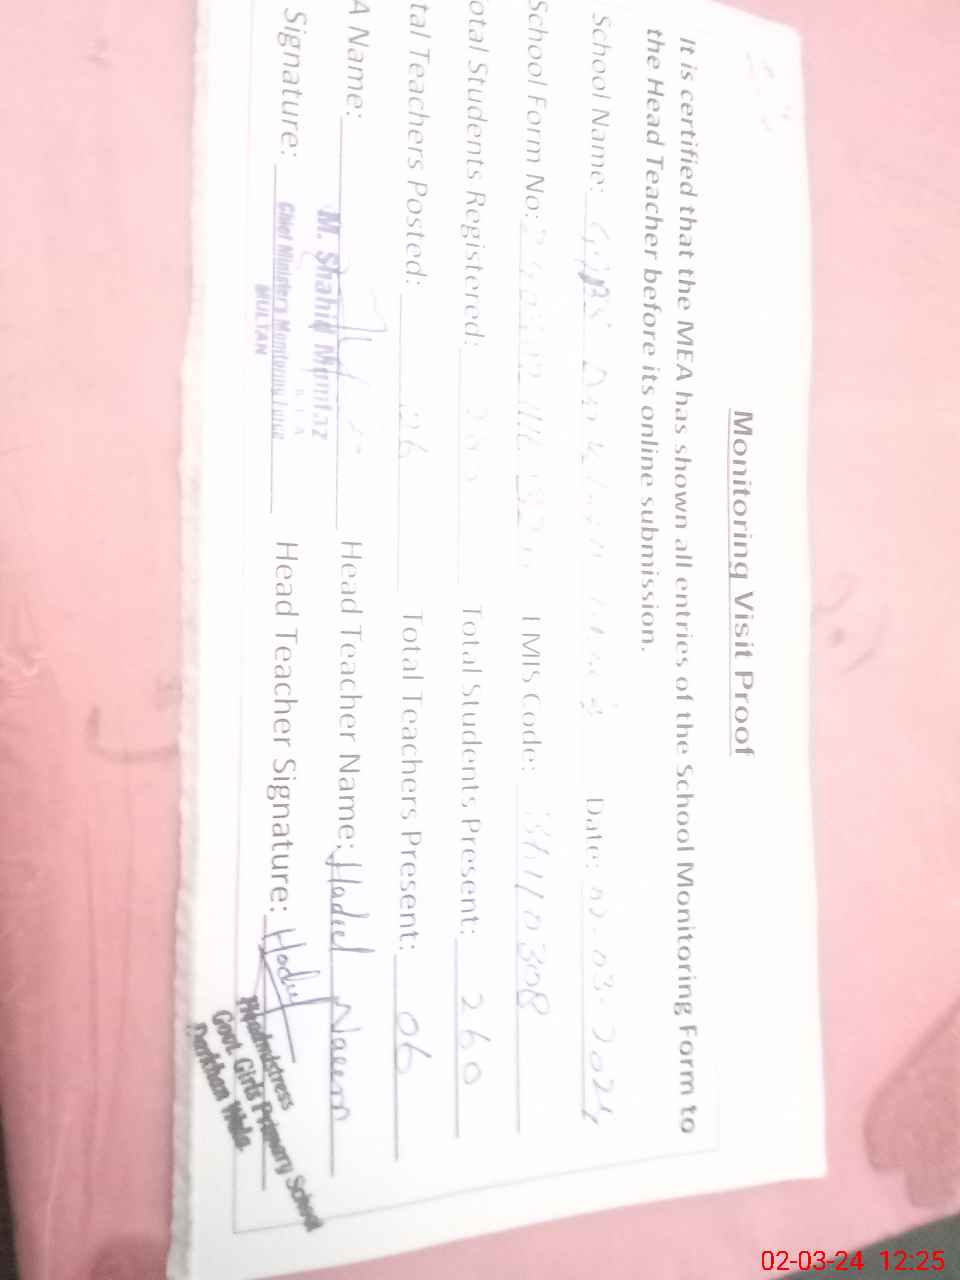 Monitoring Visit Proof
It is certified that the MEA has shown all entries of the School Monitoring Form to
the Head Teacher before its online submission.
School Name: Date: 02-03-2024
School Form No: EMIS Code: 36110308
otal Students Registered: Total Students Present: 260
tal Teachers Posted: 06 Total Teachers Present: 06
A Name: Head Teacher Name: Hadiel Naeem
M. Shahid Mumtaz
Signature: Head Teacher Signature:
Chief Minister's Monitoring Force
MULTAN
Headmistress
Govt. Girls Primary School
Darkhan Wala
02-03-24 12:25